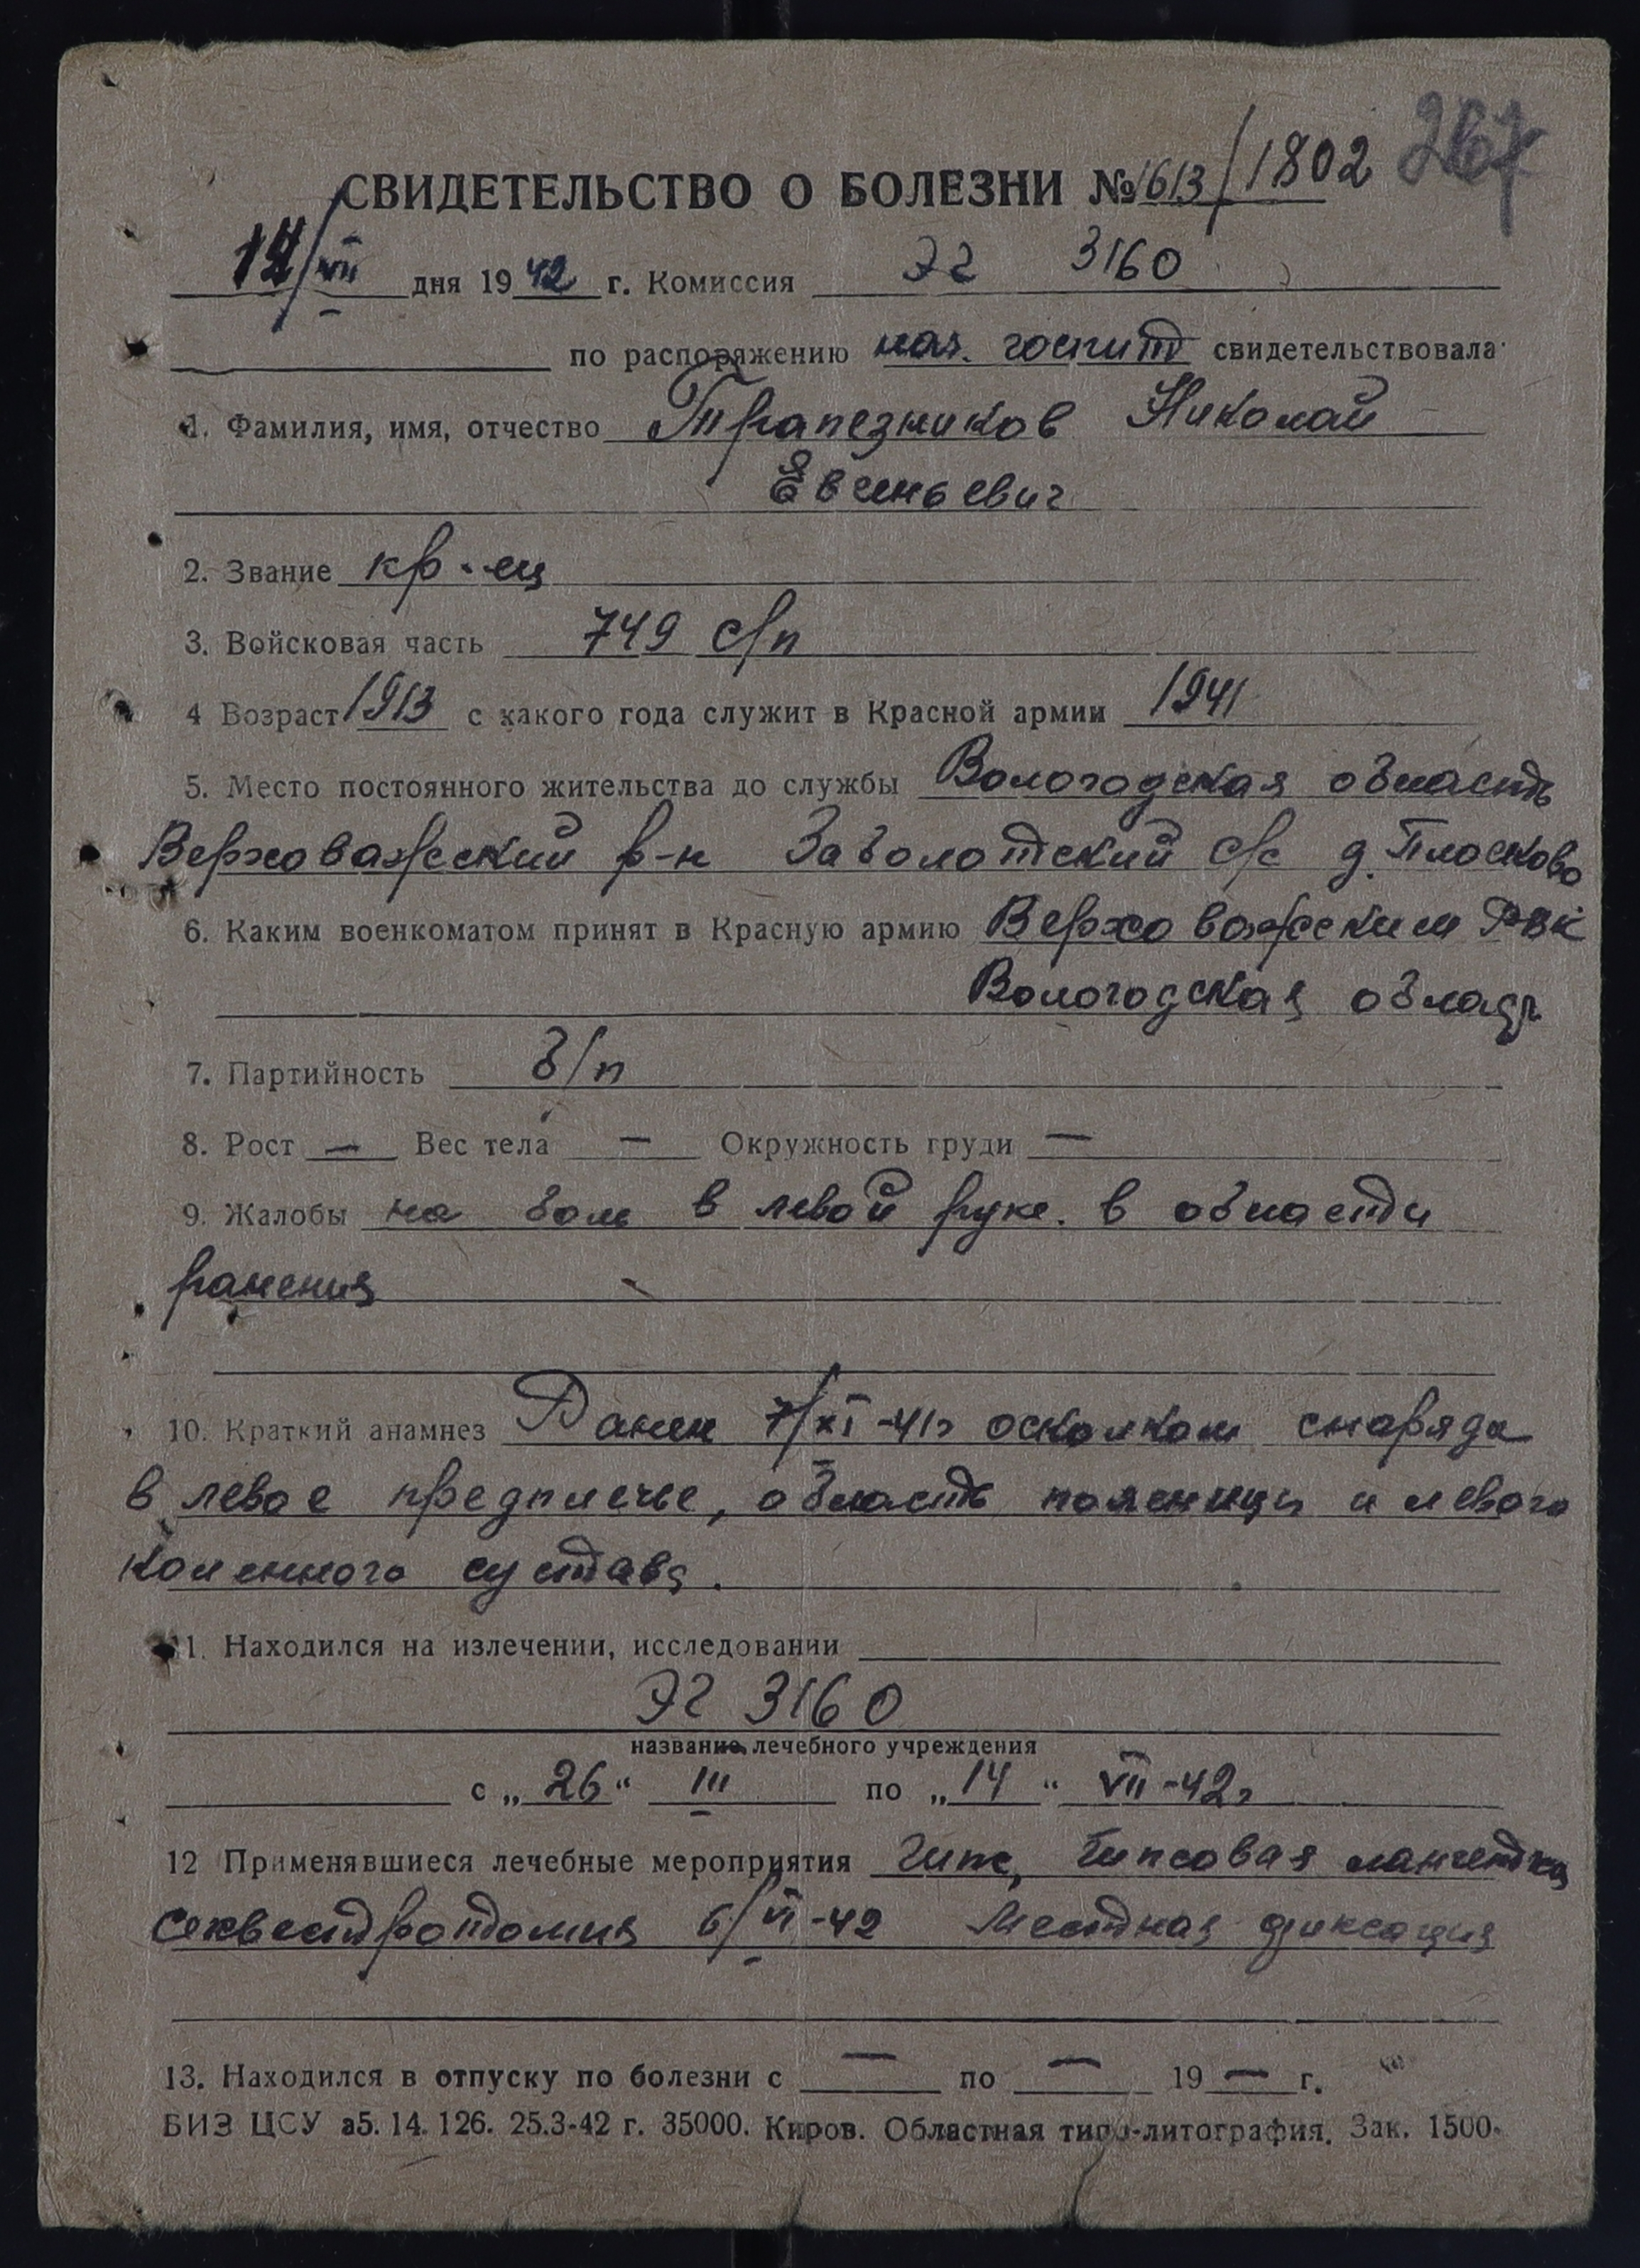 267
СВИДЕТЕЛЬСТВО О БОЛЕЗНИ № 1613/1802
14/VII дня 1942 г. Комиссия ЭГ 3160
по распоряжению нач. госпит свидетельствовала
1. Фамилия, имя, отчество Трапезников Николай
Евгеньевич
2. Звание кр-ец
3. Войсковая часть 749 с/п
4 Возраст 1913 с какого года служит в Красной армии 1941
5. Место постоянного жительства до службы Вологодская область
Верховажский р-н Заболотский с/с д. Плосково
6. Каким военкоматом принят в Красную армию Верховажским РВК
Вологодская
7. Партийность б/п
8. Рост — Вес тела — Окружность груди —
9. Жалобы на боли в левой руке. в области
ранения
10. Краткий анамнез Ранен 7/XI-41г осколком снаряда
в левое предплечье, область поясницы и левого
коленного сустава.
11. Находился на излечении, исследовании
ЭГ 3160
название лечебного учреждения
с „26“ III по „14“ VII-42г
12 Применявшиеся лечебные мероприятия Гипс, Гипсовая лангетка
секвестротомия 6/VI-42 Местная фиксация
13. Находился в отпуску по болезни с — по — 19 — г.
БИЗ ЦСУ а5. 14. 126. 25.3-42 г. 35000. Киров. Областная типо-литография. Зак. 1500.